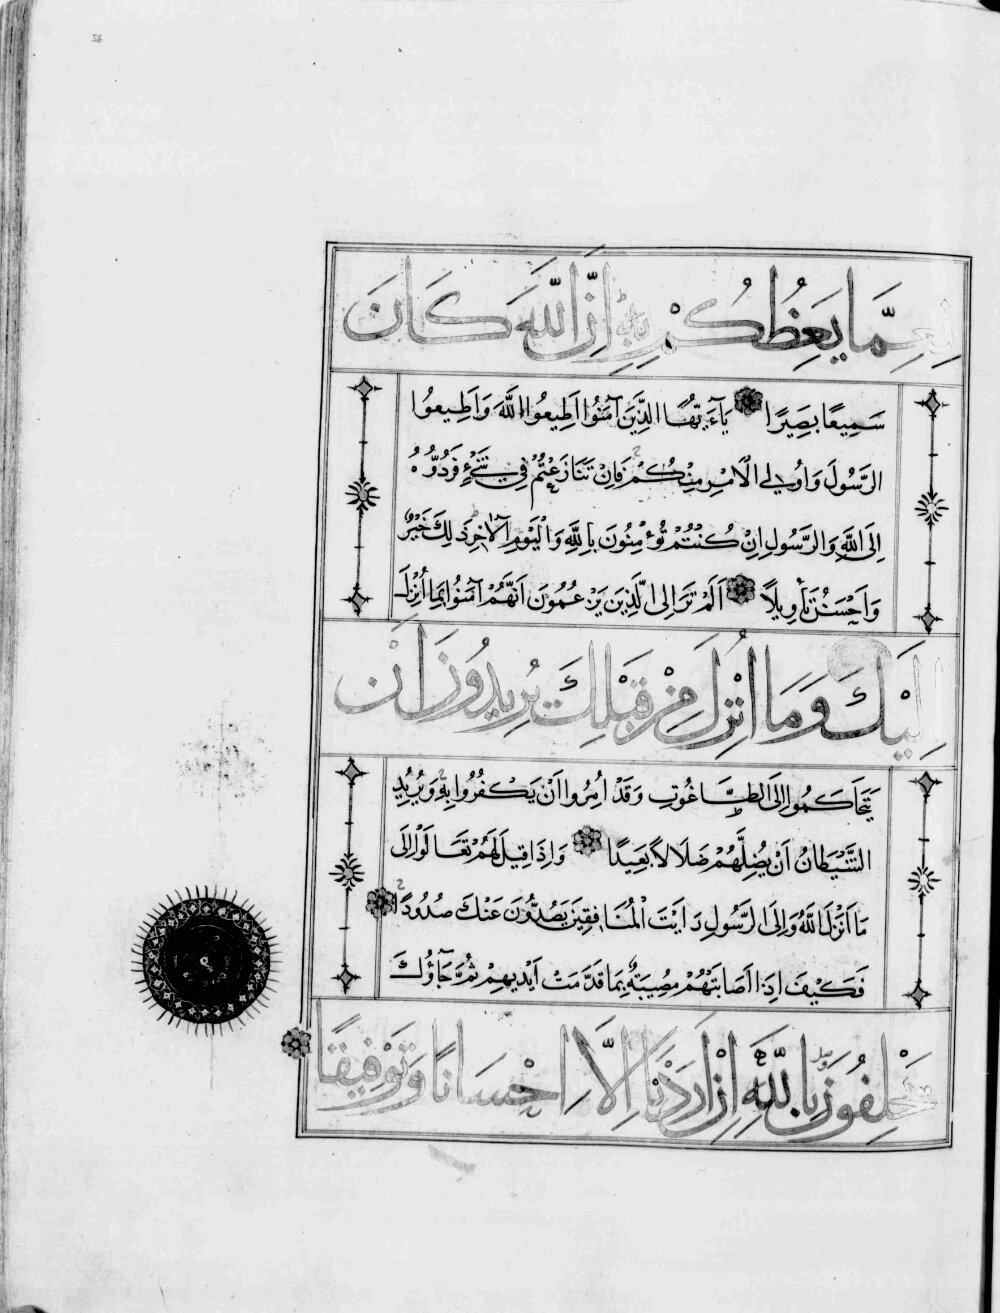 56
نِعِمَّا يَعِظُكُمْ بِهِ اِنَّ اللّٰهَ كَانَ
سَمِيعًا بَصِيرًا يَآءَيُّهَا الَّذِينَ آمَنُوا اَطِيعُوا اللَّهَ وَاَطِيعُوا
الرَّسُولَ وَاُولِى الْاَمْرِ مِنْكُمْ فَاِنْ تَنَازَعْتُمْ فِى شَىْءٍ فَرُدُّوهُ
اِلَى اللَّهِ وَالرَّسُولِ اِنْ كُنْتُمْ تُؤْمِنُونَ بِاللَّهِ وَالْيَوْمِ الْآخِرِ ذٰلِكَ خَيْرٌ
وَاَحْسَنُ تَأْوِيلًا اَلَمْ تَرَ اِلَى الَّذِينَ يَزْعُمُونَ اَنَّهُمْ آمَنُوا بِمَا اُنْزِلَ
اِلَيْكَ وَمَا اُنْزِلَ مِنْ قَبْلِكَ يُرِيدُونَ اَنْ
يَتَحَاكَمُوا اِلَى الطَّاغُوتِ وَقَدْ اُمِرُوا اَنْ يَكْفُرُوا بِهِ وَيُرِيدُ
الشَّيْطَانُ اَنْ يُضِلَّهُمْ ضَلَالًا بَعِيدًا وَاِذَا قِيلَ لَهُمْ تَعَالَوْا اِلَى
مَا اَنْزَلَ اللَّهُ وَاِلَى الرَّسُولِ رَاَيْتَ الْمُنَافِقِينَ يَصُدُّونَ عَنْكَ صُدُودًا
فَكَيْفَ اِذَا اَصَابَتْهُمْ مُصِيبَةٌ بِمَا قَدَّمَتْ اَيْدِيهِمْ ثُمَّ جَآؤُكَ
يَحْلِفُونَ بِاللّٰهِ اِنْ اَرَدْنَا اِلَّا اِحْسَانًا وَتَوْفِيقًا